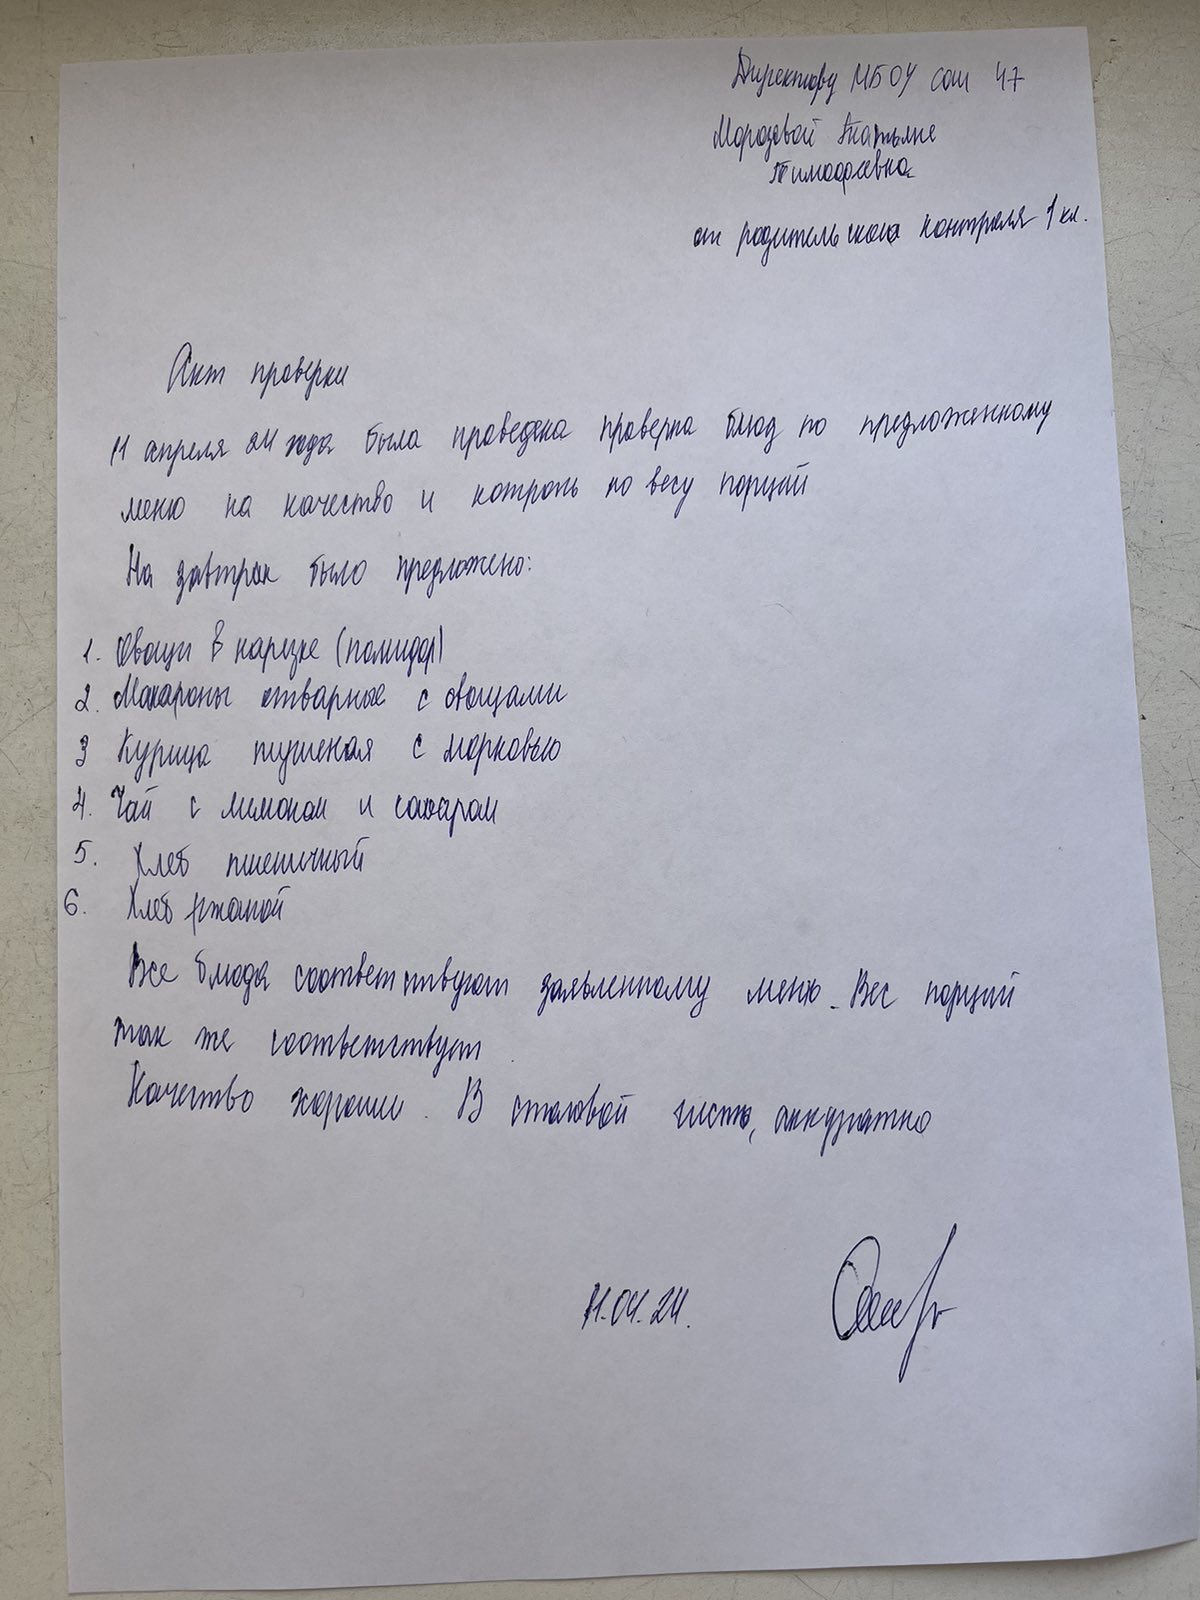 Директору МБОУ сош 47
Морозовой Татьяне
Тимофеевна
от родительского контроля 1 кл.
Акт проверки
11 апреля 24 года была проведена проверка блюд по предложенному
меню на качество и котроль по весу порций
На завтрак было предложено:
1. Овощи в нарезке (помидор)
2. Макароны отварные с овощами
3 Курица тушеная с морковью
4. Чай с лимоном и сахаром
5. Хлеб пшеничный
6. Хлеб ржаной
Все блюда соответствуют заявленному меню. Вес порций
так же соответствует.
Качество хорошее. В столовой чисто, аккуратно
11.04.24.